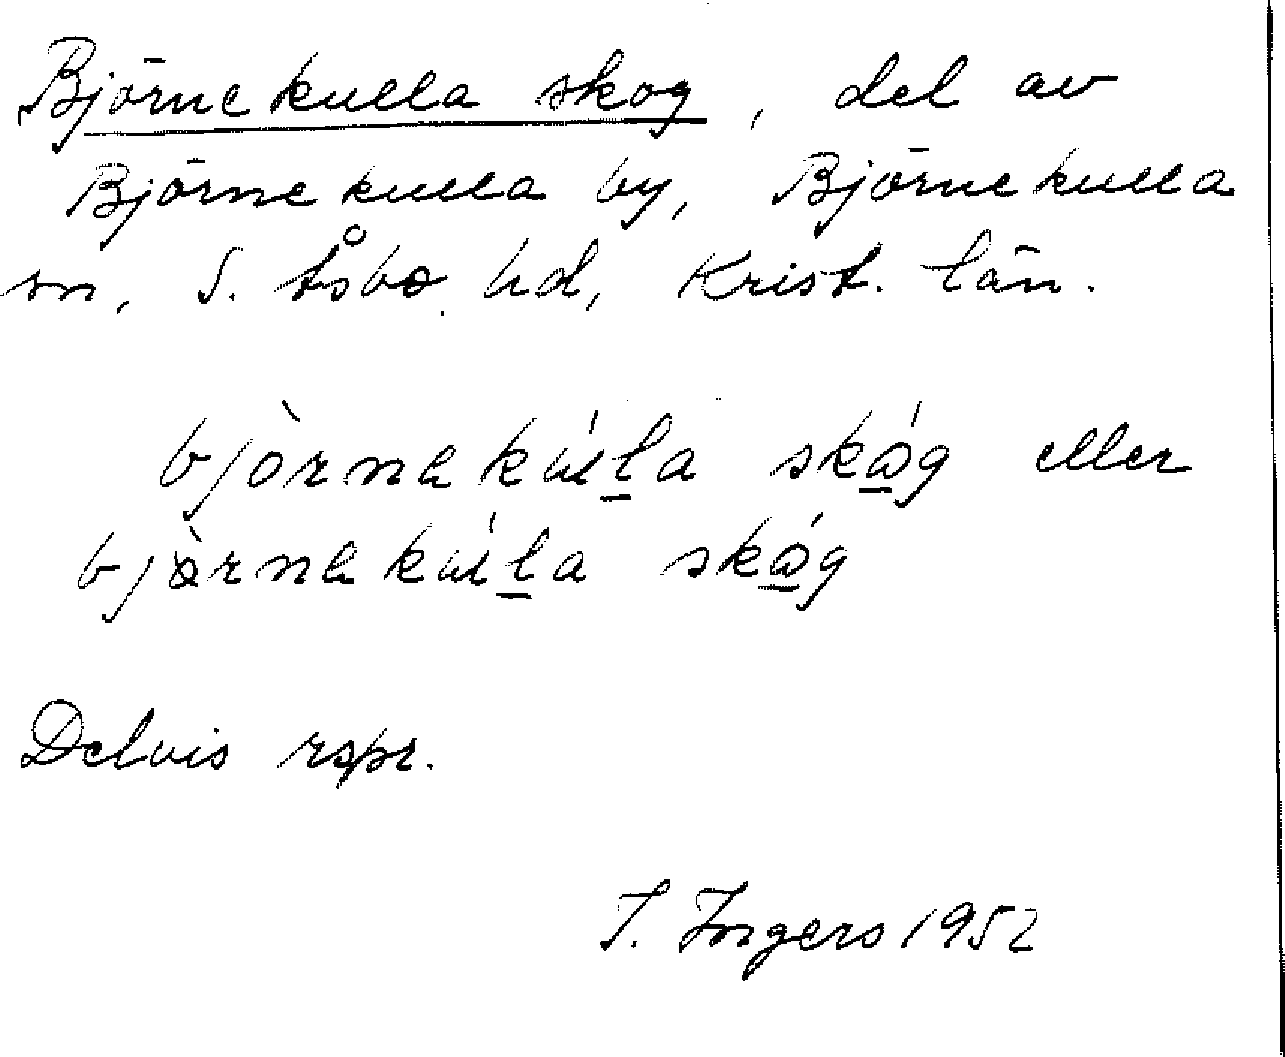 Björnekulla skog, del av
Björnekulla by, Björnekulla
sn, S. Åsbo hd, Krist. län.
bjȯ̀rnakúl̲a skó̲g eller
bjò̤rnakúl̲a skó̲g
Delvis rspr.
I. Ingers 1952